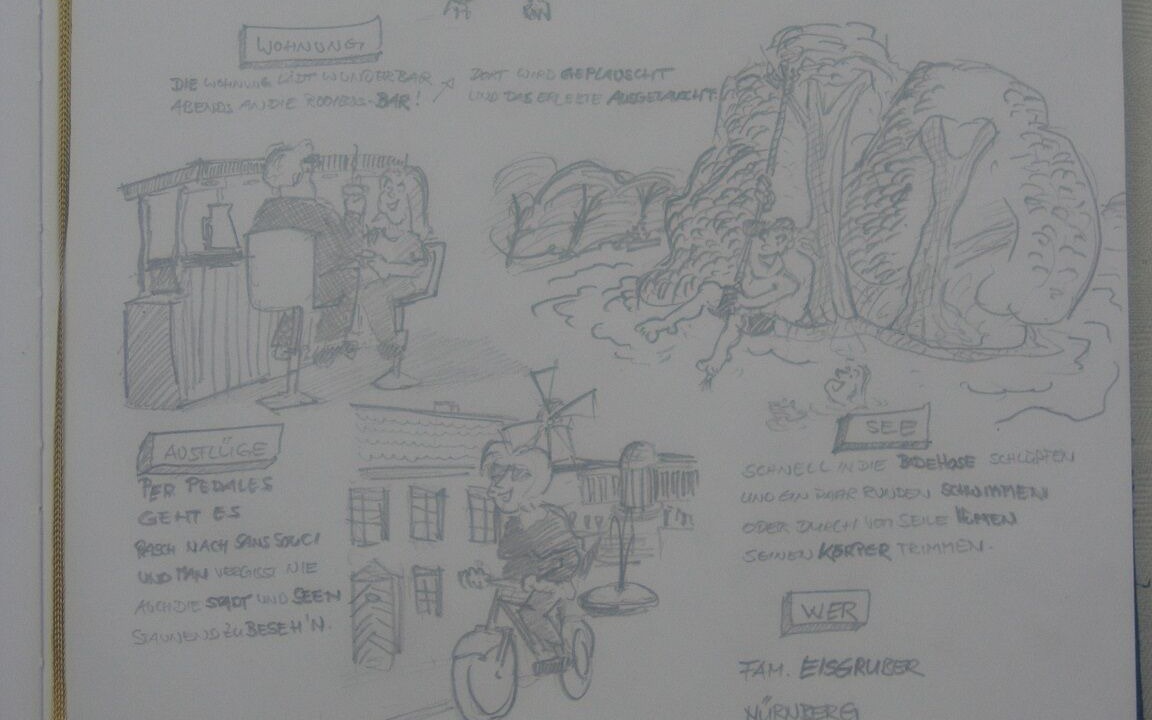 WOHNUNG
DIE WOHNUNG LÄDT WUNDERBAR
ABENDS AN DIE ROOIBUS-BAR!
DORT WIRD GEPLAUSCHT
UND DAS ERLEBTE AUSGETAUSCHT.
AUSFLÜGE
PER PEDALES
GEHT ES
RASCH NACH SANSSOUCI
UND MAN VERGISST NIE
AUCH DIE STADT UND SEEN
STAUNEND ZU BESEH'N.
SEE
SCHNELL IN DIE BADEHOSE SCHLÜPFEN
UND EIN PAAR RUNDEN SCHWIMMEN
ODER DURCH VOM SEILE
SEINEN KÖRPER TRIMMEN.
WER
FAM. EISGRUBER
NÜRNBERG